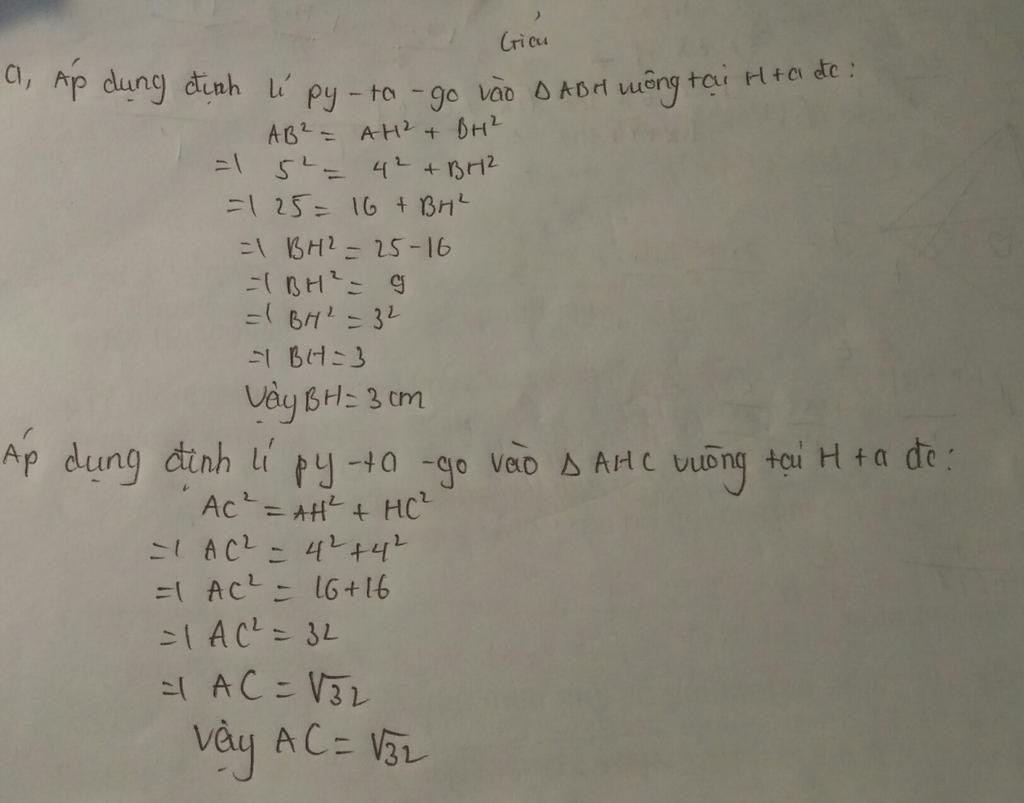 Giải
a, Áp dụng định lí py-ta-go vào Δ ABH vuông tại H ta đc:
AB² = AH² + BH²
=> 5² = 4² + BH²
=> 25 = 16 + BH²
=> BH² = 25-16
=> BH² = 9
=> BH² = 3²
=> BH = 3
Vậy BH = 3 cm
Áp dụng định lí py-ta-go vào Δ AHC vuông tại H ta đc:
AC² = AH² + HC²
=> AC² = 4²+4²
=> AC² = 16+16
=> AC² = 32
=> AC = √32
Vậy AC = √32